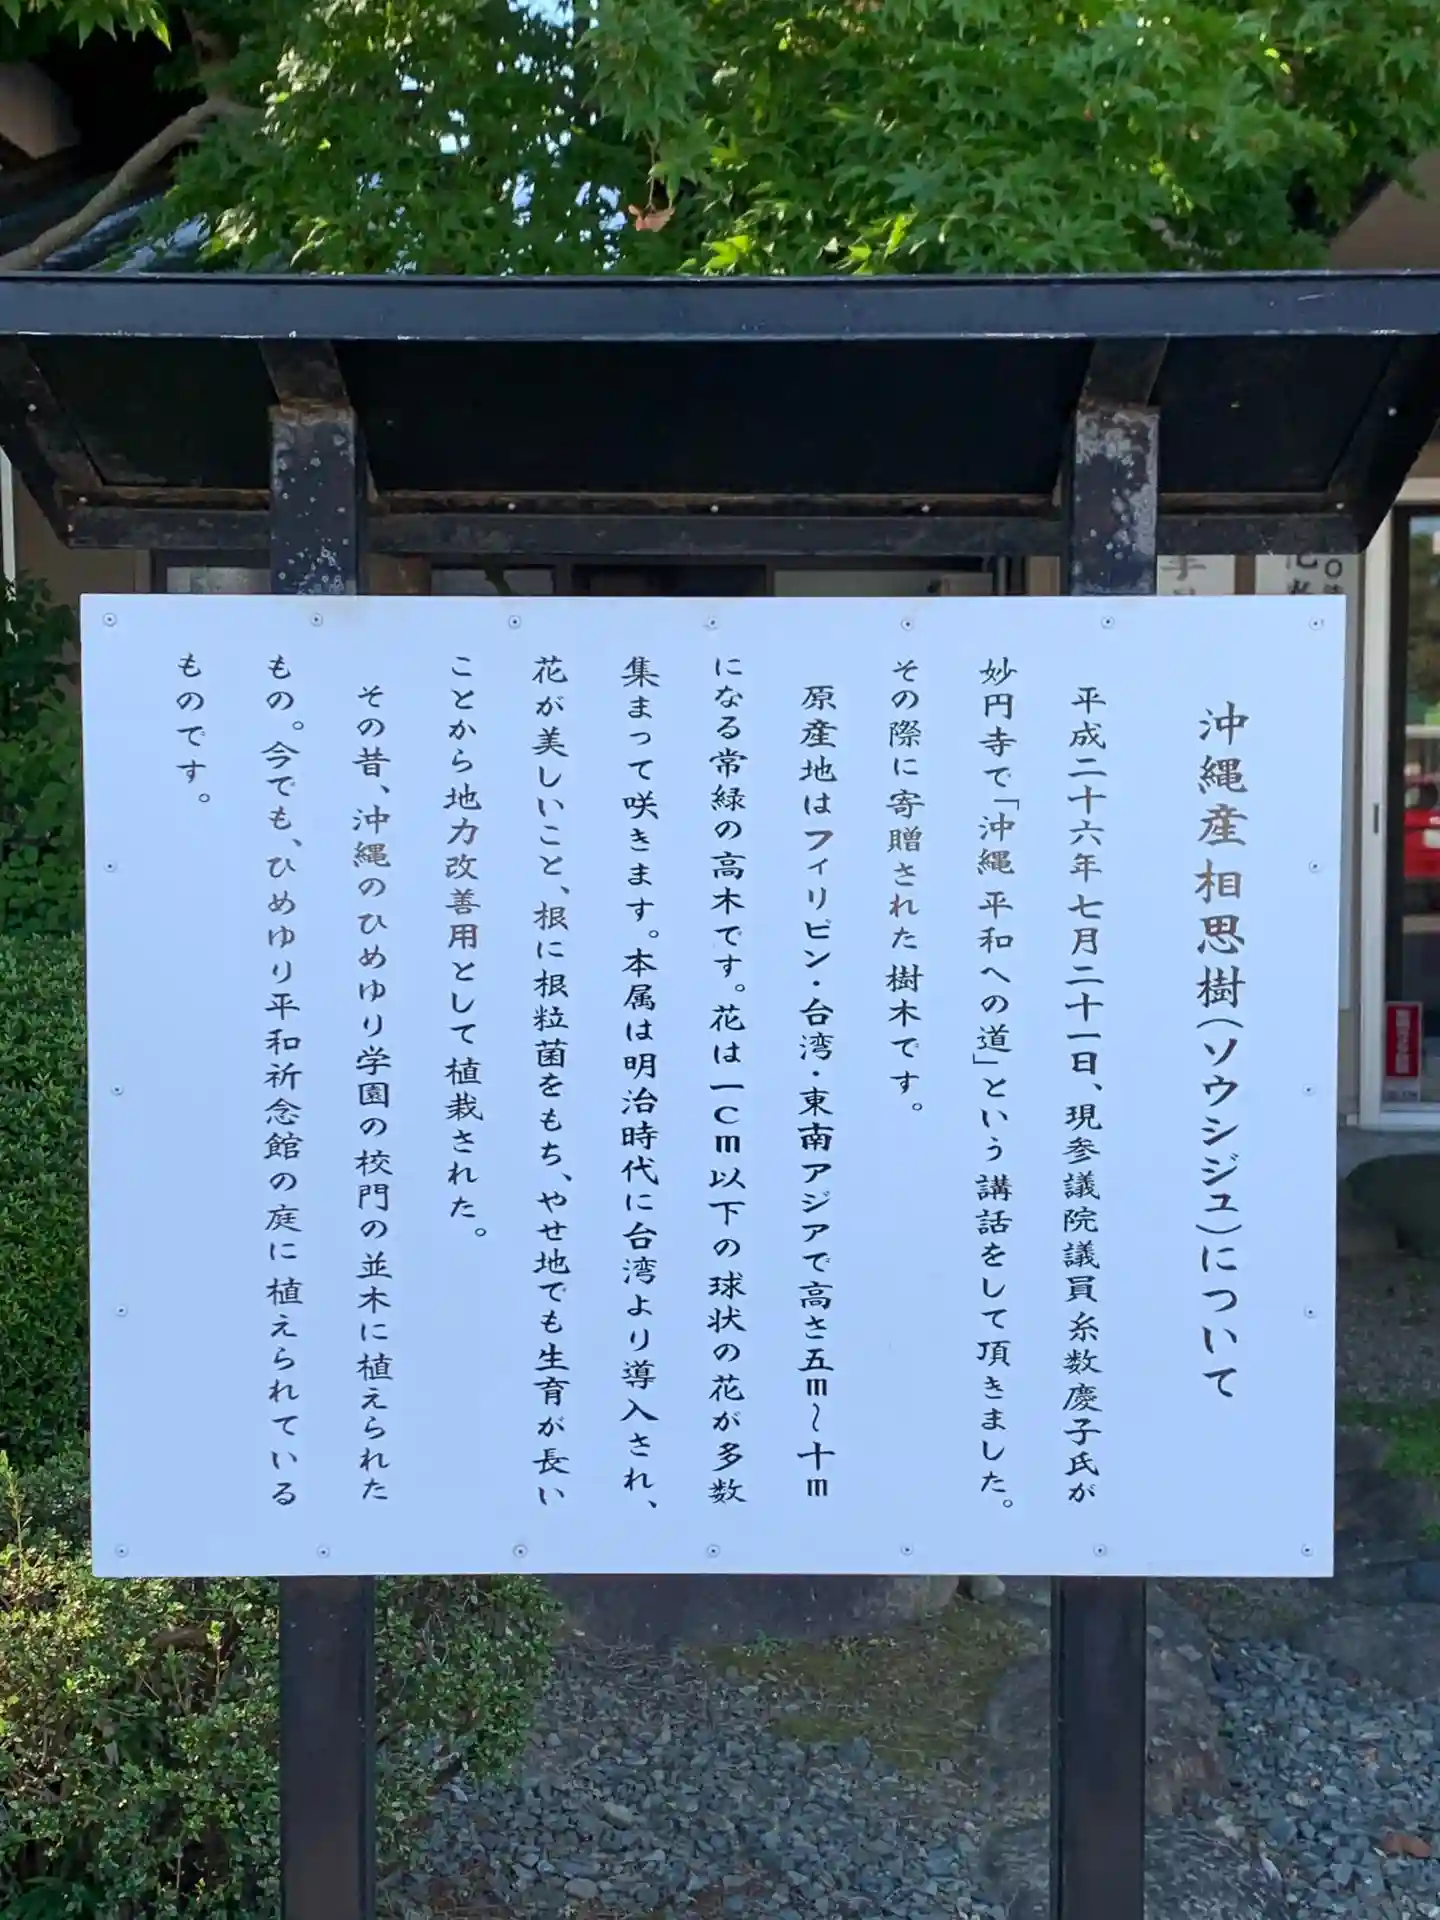 沖縄産相思樹(ソウシジュ)について
平成二十六年七月二十一日、現参議院議員糸数慶子氏が
妙円寺で「沖縄 平和への道」という講話をして頂きました。
その際に寄贈された樹木です。
原産地はフィリピン・台湾・東南アジアで高さ五m〜十m
になる常緑の高木です。花は一Cm以下の球状の花が多数
集まって咲きます。本属は明治時代に台湾より導入され、
花が美しいこと、根に根粒菌をもち、やせ地でも生育が長い
ことから地力改善用として植栽された。
その昔、沖縄のひめゆり学園の校門の並木に植えられた
もの。今でも、ひめゆり平和祈念館の庭に植えられている
ものです。